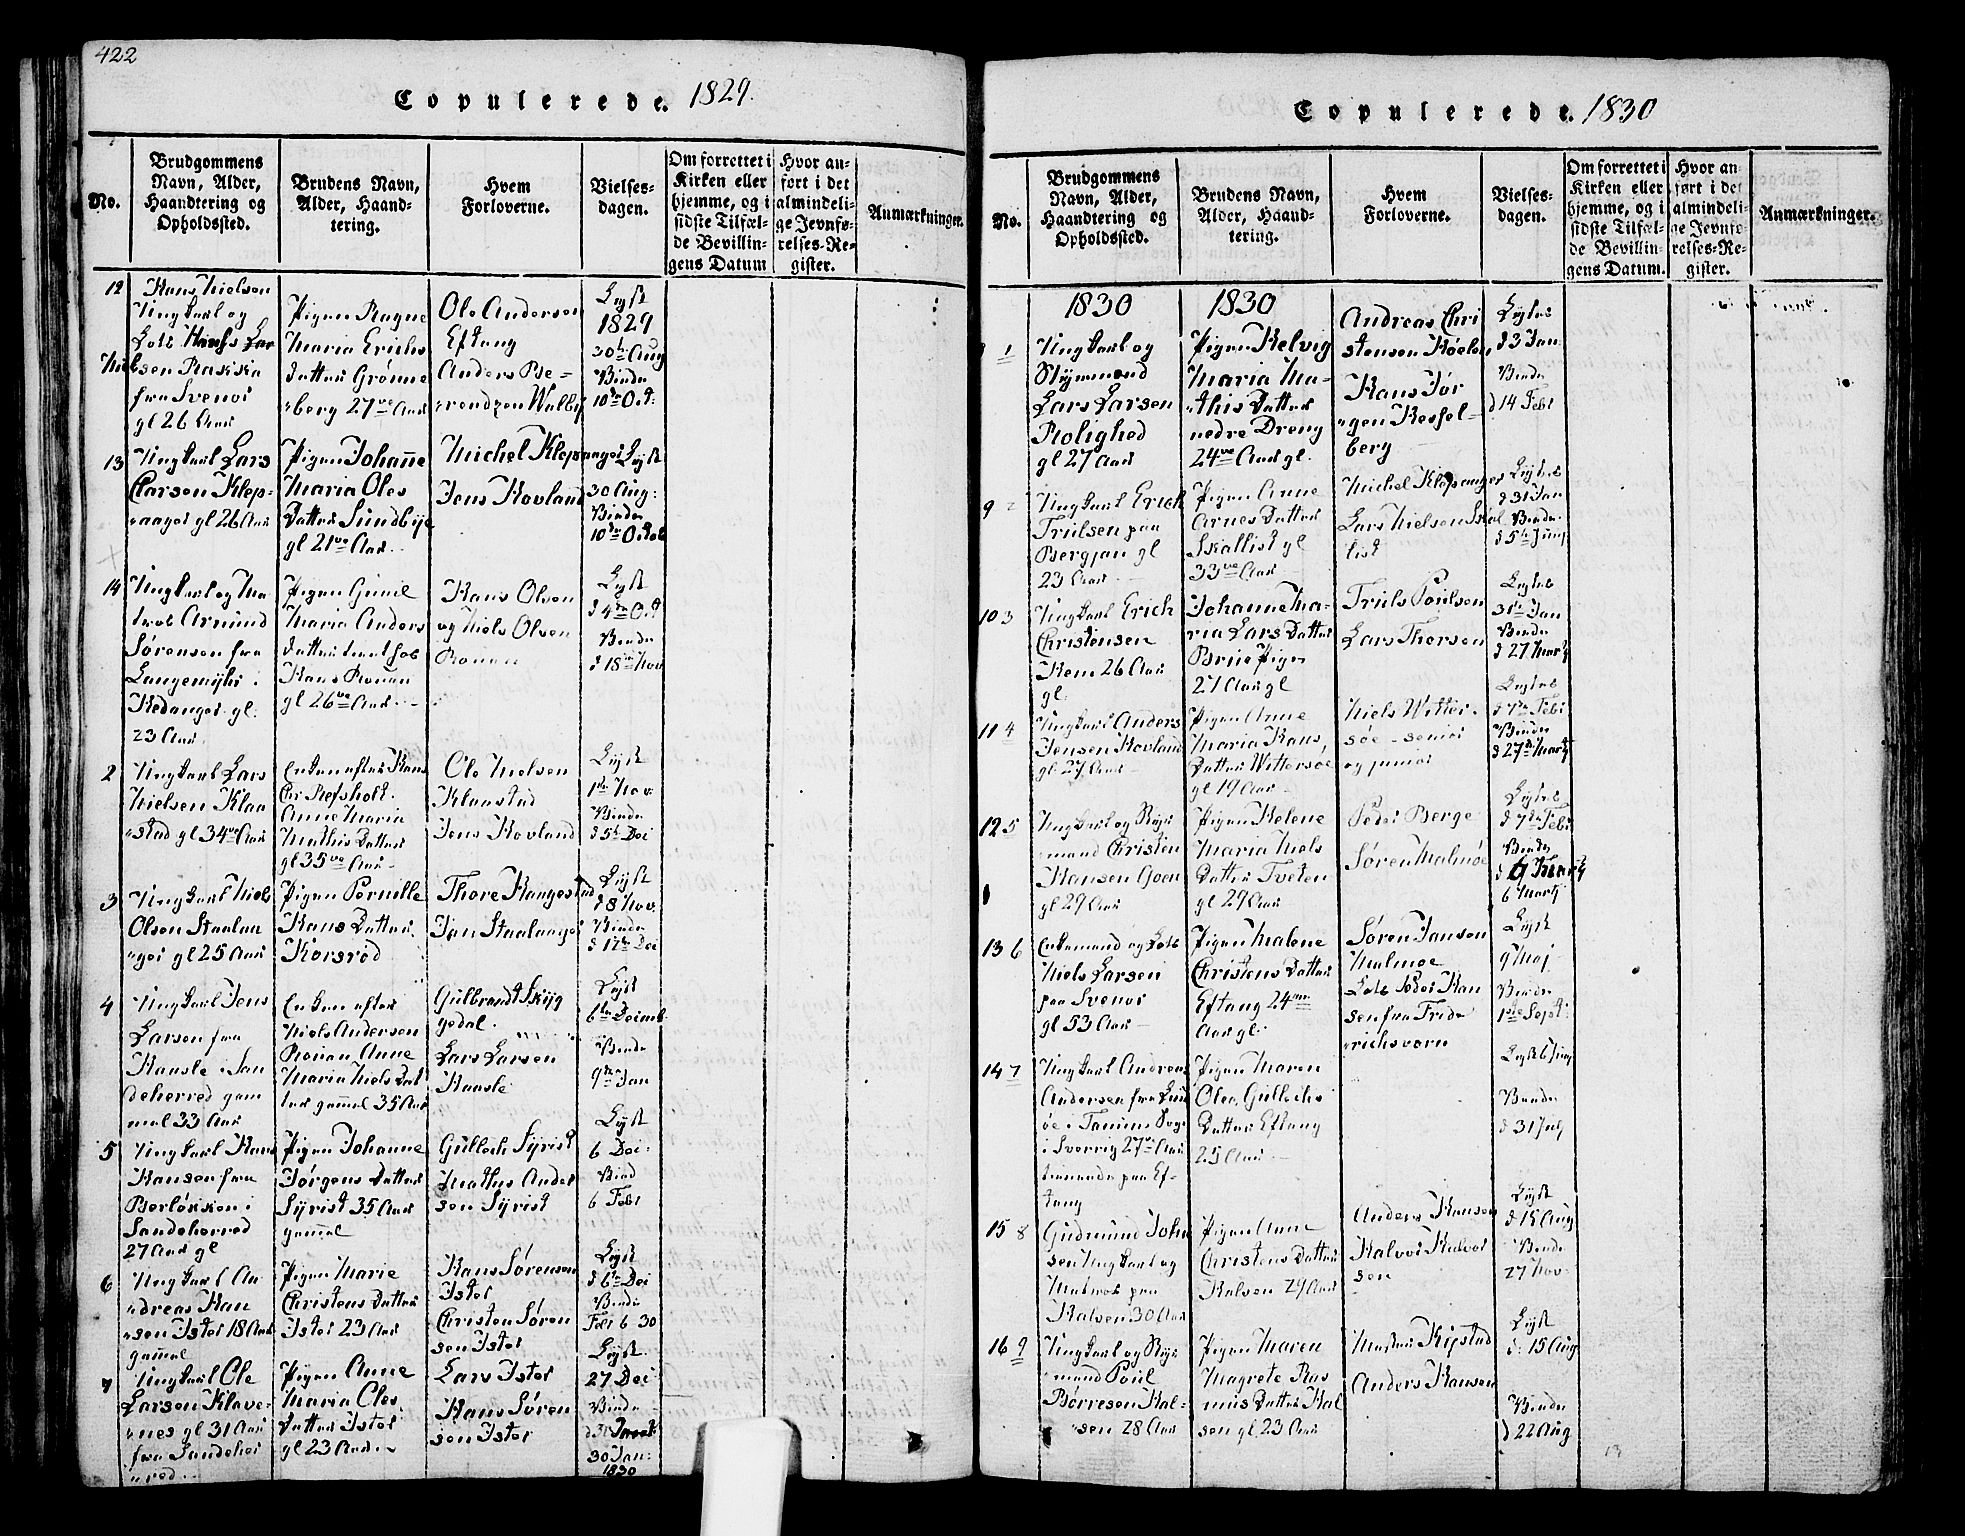 422
Copulerede. 1829.
No.
Brudgommens
Navn, Alder,
Haandtering og
Opholdssted.
Brudens Navn,
Alder, Haand-
tering.
Hvem
Forloverne.
Vielses-
dagen.
Om forrettet i
Kirken eller
hjemme, og i
sidste Tilfæl-
de Bevillin-
gens Datum
Hvor an-
ført i det
almindeli-
ge Jevnfø-
relses-Re-
gister.
Anmærkninger.
12
Hans Nielsen
Ungkarl og
fra Svenør
gl 26 Aar
Pigen Ragne
Maria Erichs
Datter Grønne
berg 27ve Aar
Ole Andersen
Eftang
Anders Be-
rendzen Walby
Lyst
1829
30te Aug
Viede
10de Oct:
13
Ungkarl Lars
Larsen Klep-
aager gl 26 Aar
Pigen Johanne
Maria Oles
Datter Sundbye
gl 21ve Aar
Michel Klepaager
Jens Hovland
Lyst
30 Aug:
Viede
10de Octob
14
Ungkarl og Ma
tros Armund
Sørensen fra
Langemyhr i
Hedanger gl:
23 Aar
Pigen Gunil
Maria Anders
Datter
Hans Ronan
gl 26ve Aar
Hans Olsen
og Niels Olsen
Ronan
Lyst
d 4de Oct
Viede
d 18de Nov
2
Ungkarl Lars
Nielsen Klaa
stad gl 34ve Aar
Enken efter Hans
Chr Refsholt
Anne Maria
Mathis Datter
gl 35ve Aar
Ole Nielsen
Klaastad
Jens Hovland
Lyst
1te Nov:
Viede
d 5te Dec
3
Ungkarl Niels
Olsen Staalaa
ger gl 25 Aar
Pigen Pernille
Hans Datter
Korsrød
Thore Haugestad
Jan Staalaager
Lyst
d 8 Nov:
Viede
d 17de Dec
4
Ungkarl Jens
Larsen fra
Haasle i San
deherred gam
mel 33 Aar
Enken efter
Niels Andersen
Ronan Anne
Maria Niels Dat
ter gammel 35 Aar
Gulbrandt Skyg
gedal.
Lars Larsen
Haasle
Lyst
6te Decemb
Viede
9de Jan
5
Ungkarl Hans
Hansen fra
Berløkken i
Sandeherred
27 Aar gl
Pigen Johanne
Jørgens Datter
Syrist 35 Aar
gammel
Gulloch Syrist
Mathis Ander
sen Syrist
Lyst
6 Dec:
Vied
6 Febr
6
Ungkarl An
dreas Han
sen Ister 18 Aar
gammel
Pigen Marie
Christens Datter
Ister 23 Aar
Hans Sørensen
Ister
Christen Søren
sen Ister
Lyst
d 6te Dec
Viede
Febr 6 30
7
Ungkarl Ole
Larsen Klave-
nes gl 31 Aar
fra Sandeher
red
Pigen Anne
Maria Oles
Datter Ister
gl 23 Aar
Lars Ister
Hans Søren
sen Ister
Lyst
27 Dec
Viede
30 Jan:
1830
Copulerede. 1830
No.
Brudgommens
Navn, Alder,
Haandtering og
Opholdssted.
Brudens Navn,
Alder, Haand-
tering.
Hvem
Forloverne.
Vielses-
dagen.
Om forrettet i
Kirken eller
hjemme, og i
sidste Tilfæl-
de Bevillin-
gens Datum.
Hvor an
ført i det
almindeli-
ge Jevnfø-
relses-Re-
gister.
Anmærkninger.
1830
1830
1
Ungkarl og
Styrmand
Lars Larsen
Rolighed
gl 27 Aar
Pigen Helvig
Maria Ma-
this Datter
nedre Dreng
24ve Aar gl.
Andreas Chri
stensen
Hans Jør
gen Kessel-
berg
Lystes
d 3 Jan
Viede
d 14 Febr
9 2
Ungkarl Erich
Trulsen paa
Bergjan gl
23 Aar
Pigen Anne
Arnes Datter
Skallist gl
33ve Aar
Michel Klepaager
Lars Nielsen Skal
list
Lystes
d 31 Jan
Viede
d 5te Juny
10 3
Ungkarl Erich
Christensen
Hem 26 Aar
gl.
Johanne Ma-
ria Lars Datter
Brue Pige
27 Aar gl
Truls Poulsen
Lars Thorsen
Lystes
31te Jan
Viede
d 27 Marty
11 4
Ungkarl Anders
Jensen Hovland
gl 27 Aar
Pigen Anne
Maria Hans
Datter Wittersøe
gl 19 Aar
Niels Witter-
søe senior
og junior
Lystes
d 7de Febr
Viede
d 27de Marty
12 5
Ungkarl og Styr
mand Christen
Hansen Goen
gl 29 Aar
Pigen Helene
Maria Niels
Datter Tveten
gl 29 Aar
Peder Berge
Søren Malmøe
Lystes
d 7de Febr
Viede
6 Marty
13 6
Enkemand og Lods
Niels Larsen
paa Svenør
gl 53 Aar
Pigen Malene
Christens Datter
Eftang 24
Aar gl:
Søren Jansen
Malmøe
Lods Peder Han
sen fra Fride
richsværn
Lyst
9 Maj
Viede
1ste Sept:
14 7
Ungkarl Andreas
Andersen fra
øe i Tanums Sogn
i Sverrig 27ve Aar
tienende paa Ef-
tang
Pigen Maren
Olea Gullichs
Datter Eftang
25 Aar
Lyst 6 Juny
Viede
d 31 July
15 8
Gudmund John
sen Ungkarl og
Matros paa
Halsen 30 Aar
Pigen Anne
Christens Datter
Halsen 29 Aar
Anders Hansen
Halvor Halvor
sen
Lyst
d 15 Aug
Viede
27 Nov
16 9
Ungkarl og Styr
mand Poul
Børresen Hal-
sen 28 Aar
Pigen Maren
Magrete Ras
mus Datter Hal
sen gl 23 Aar
Mathis Kjestad
Anders Hansen
Lyst
d: 15 Aug
Viede
d 22 Aug